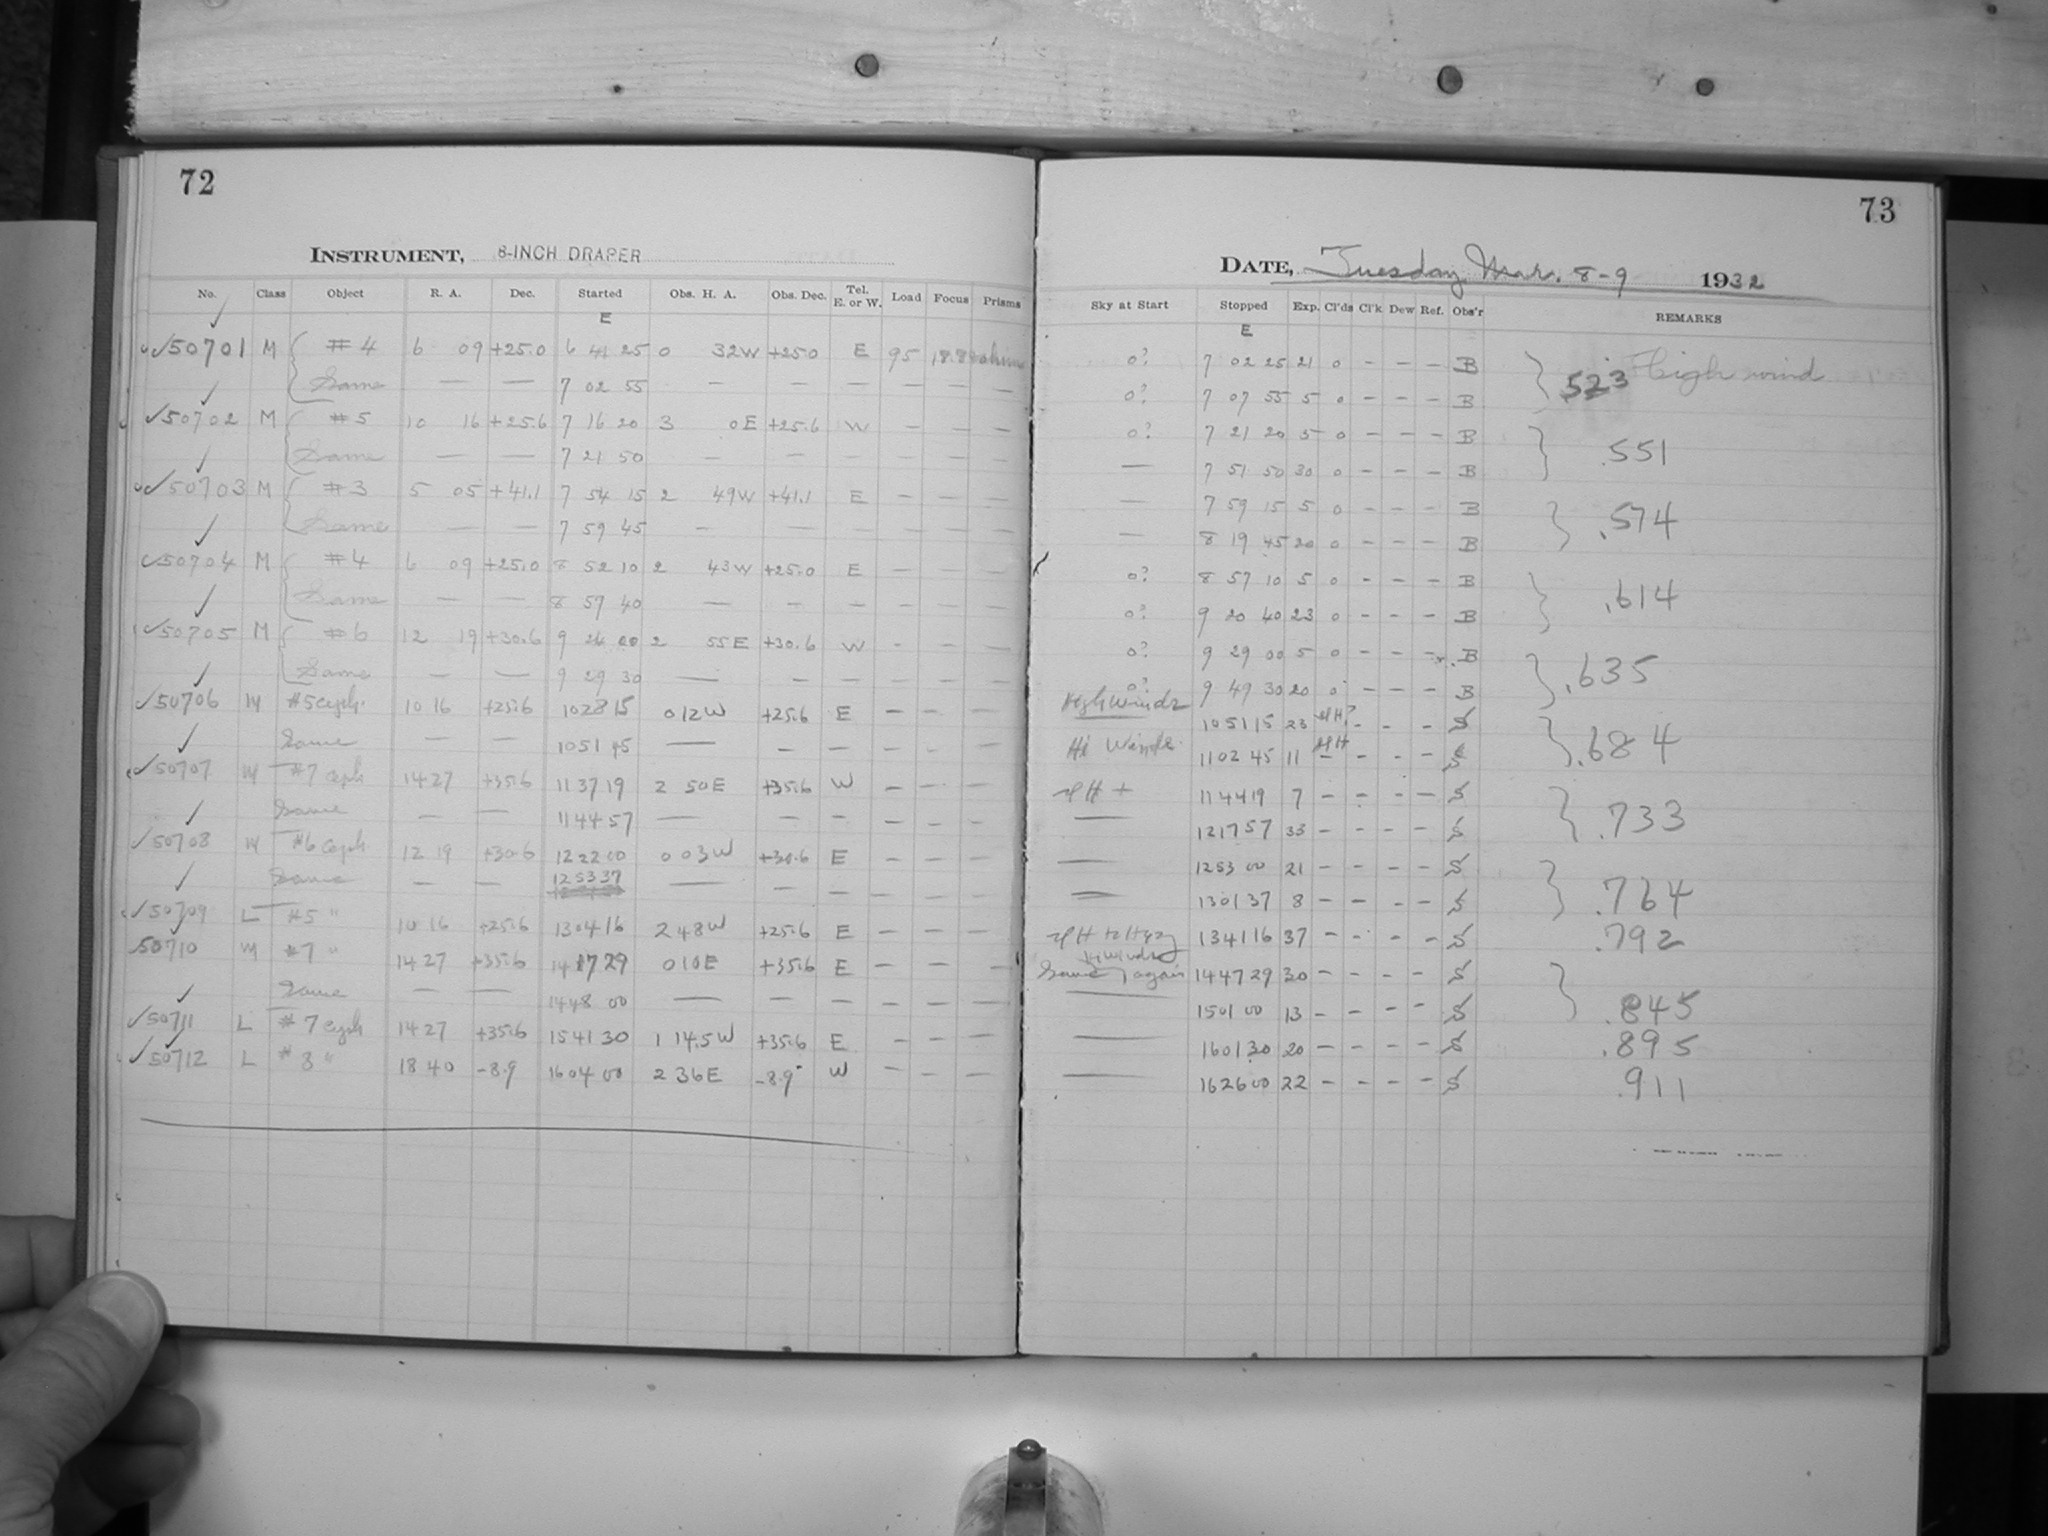 72
INSTRUMENT, 8-INCH DRAPER
No. Class Object R. A. Dec. Started Obs. H. A. Obs. Dec. Tel. E. or W. Load Focus Prisms
E
50701 M #4 6 09 +25.0 6 41 25 0 32W +25.0 E 95
Same — — 7 02 55 — — — — — —
50702 M #5 10 16 +25.6 7 16 20 3 0E +25.6 W — — —
Same — — 7 21 50 — — — — — —
50703 M #3 5 05 +41.1 7 54 15 2 49W +41.1 E — — —
Same — — 7 59 45 — — — — — —
50704 M #4 6 09 +25.0 8 52 10 2 43W +25.0 E — — —
Same — — 8 57 40 — — — — — —
50705 M #6 12 19 +30.6 9 24 00 2 55E +30.6 W — — —
Same — — 9 29 30 — — — — — —
50706 M #5 ceph. 10 16 +25.6 10 28 15 0 12W +25.6 E — — —
Same — — 10 51 45 — — — — — —
50707 M #7 ceph 14 27 +35.6 11 37 19 2 50E +35.6 W — — —
Same — — 11 44 57 — — — — — —
50708 M #6 ceph 12 19 +30.6 12 22 00 0 03W +30.6 E — — —
Same — — 12 53 37 — — — — — —
50709 L #5 " 10 16 +25.6 13 04 16 2 48W +25.6 E — — —
50710 M #7 " 14 27 +35.6 14 17 29 0 10E +35.6 E — — —
Same — — 14 48 00 — — — — — —
50711 L #7 ceph 14 27 +35.6 15 41 30 1 14.5W +35.6 E — — —
50712 L #8 " 18 40 -8.9 16 04 00 2 36E -8.9 W — — —
73
DATE, Tuesday Mar. 8-9 1932
Sky at Start Stopped Exp. Cl'ds Cl'k Dew Ref. Obs'r REMARKS
E
0? 7 02 25 21 0 — — — B .523 High wind
0? 7 07 55 5 0 — — — B
0? 7 21 20 5 0 — — — B .551
— 7 51 50 30 0 — — — B
— 7 59 15 5 0 — — — B .574
— 8 19 45 20 0 — — — B
0? 8 57 10 5 0 — — — B .614
0? 9 20 40 23 0 — — — B
0? 9 29 00 5 0 — — — B .635
0? 9 49 30 20 0 — — — B
High Winds 10 51 15 23 — — — S .684
Hi Winds 11 02 45 11 — — — — S
11 44 19 7 — — — — S .733
— 12 17 57 33 — — — — S
— 12 53 00 21 — — — — S .764
— 13 01 37 8 — — — — S
13 41 16 37 — — — — S .792
Same again 14 47 29 30 — — — — S .845
— 15 01 00 13 — — — — S
— 16 01 30 20 — — — — S .895
— 16 26 00 22 — — — — S .911